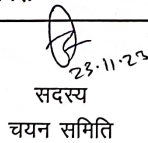 23.11.23
सदस्य
चयन समिति